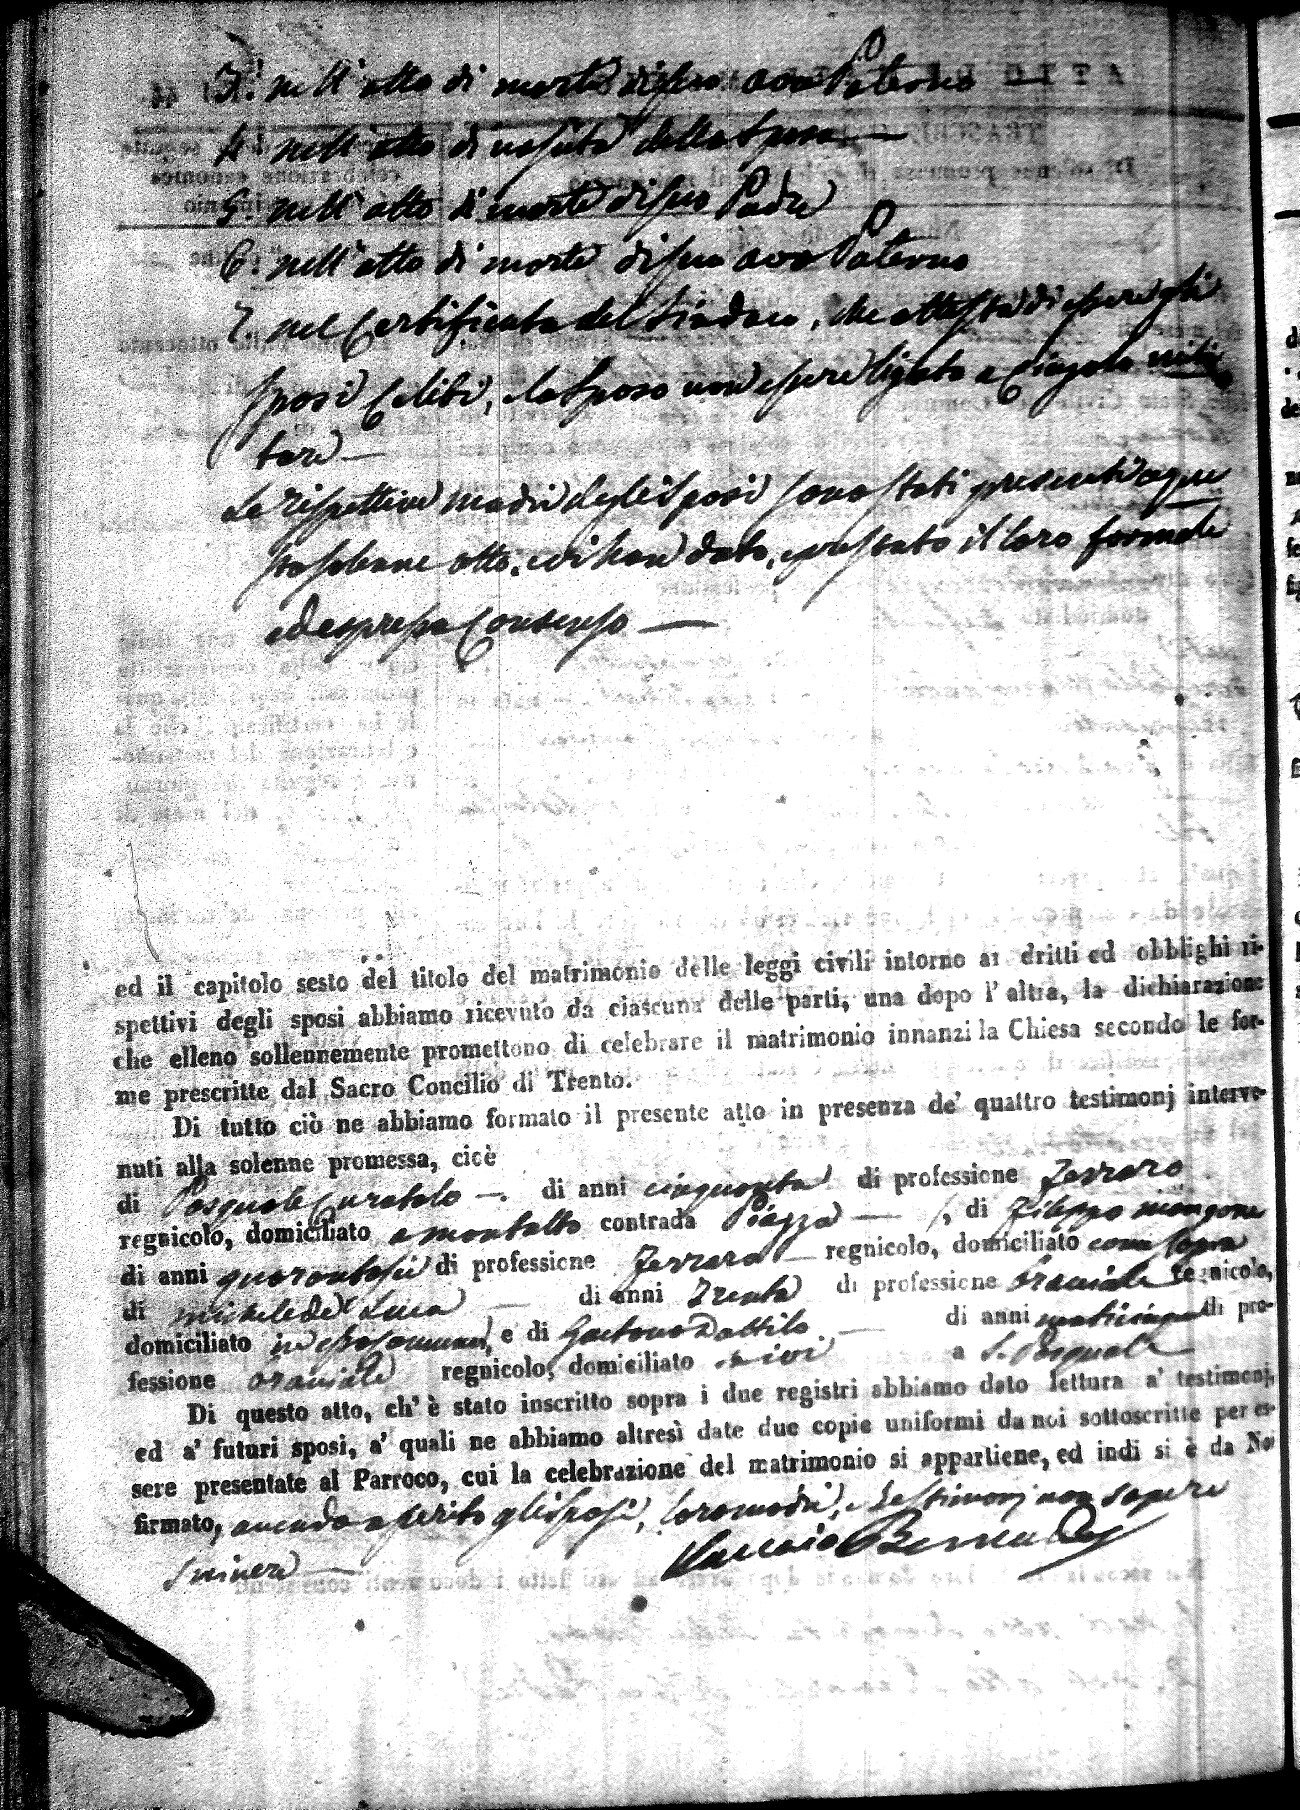 3. nell'atto di morte di suo avo Paterno
4. nell'atto di nascita della Sposa
5. nell'atto di morte di suo Padre
6. nell'atto di morte di suo avo Paterno
7. nel Certificato del Sindaco, che attesta di essere gli
Sposi Celibi, e lo Sposo non essere ligato a Cingolo mili
tare
Le rispettive madri degli Sposi sono stati presenti a que
sto solenne atto, e vi han dato, e prestato il loro formale
ed espresso Consenso
ed il capitolo sesto del titolo del matrimonio delle leggi civili intorno ai dritti ed obblighi ri-
spettivi degli sposi abbiamo ricevuto da ciascuna delle parti, una dopo l'altra, la dichiarazione
che elleno sollennemente promettono di celebrare il matrimonio innanzi la Chiesa secondo le for-
me prescritte dal Sacro Concilio di Trento.
Di tutto ciò ne abbiamo formato il presente atto in presenza de' quattro testimonj interve-
nuti alla solenne promessa, cioè
di Pasquale Curatolo di anni cinquanta di professione Ferraro
regnicolo, domiciliato a Montalto contrada Piazza, di Filippo Mangone
di anni quarantasei di professione Ferraro regnicolo, domiciliato come sopra
di Michele De Luca di anni Trenta di professione Braciale regnicolo,
domiciliato in esso comune, e di Gaetano Dattilo di anni di pro-
fessione braciale regnicolo, domiciliato ivi a S. Pasquale
Di questo atto, ch'è stato inscritto sopra i due registri abbiamo dato lettura a' testimonj,
ed a' futuri sposi, a' quali ne abbiamo altresì date due copie uniformi da noi sottoscritte per es-
sere presentate al Parroco, cui la celebrazione del matrimonio si appartiene, ed indi si è da Noi
firmato, avendo asserito gli sposi, loro madri, e Testimonj non sapere
scrivere